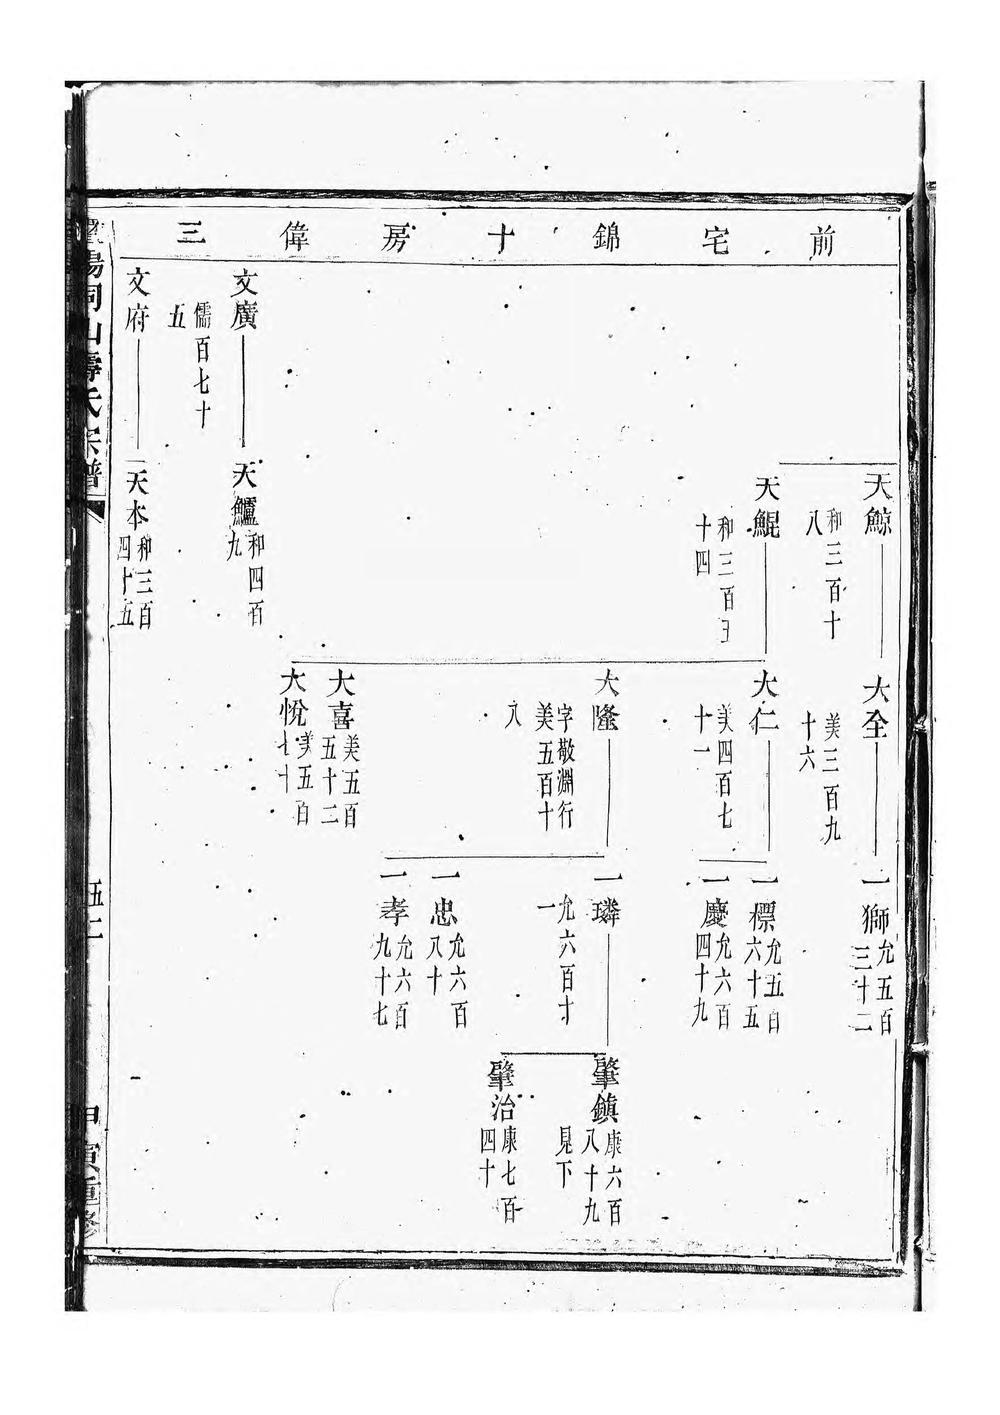 前宅錦十房偉三
天鯨
和三百十
八
天鯤
和三百五
十四
文廣
儒百七十
五
天鱸
和四百
九
文府
天本
和三百
四十五
大全
美三百九
十六
大仁
美四百七
十一
大隆
字敬淵行
美五百十
八
大喜
美五百
五十二
大悅
美五百
七十
一獅
允五百
三十二
一標
允五百
六十五
一慶
允六百
四十九
一璘
允六百十
一
一忠
允六百
八十
一孝
允六百
九十七
肇鎮
康六百
八十九
見下
肇治
康七百
四十
暨陽同山壽氏宗譜
五二
甲寅重修